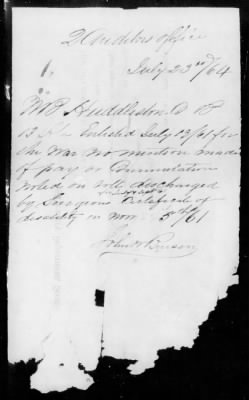 2 Auditors Office
July 23rd /64
M B Huddleston Co B
13 Enlisted July 13/61 for
the War no mention made
of pay or Commutation
noted on roll discharged
by Surgeons Certificate of
disability in Nov 5th/61
John